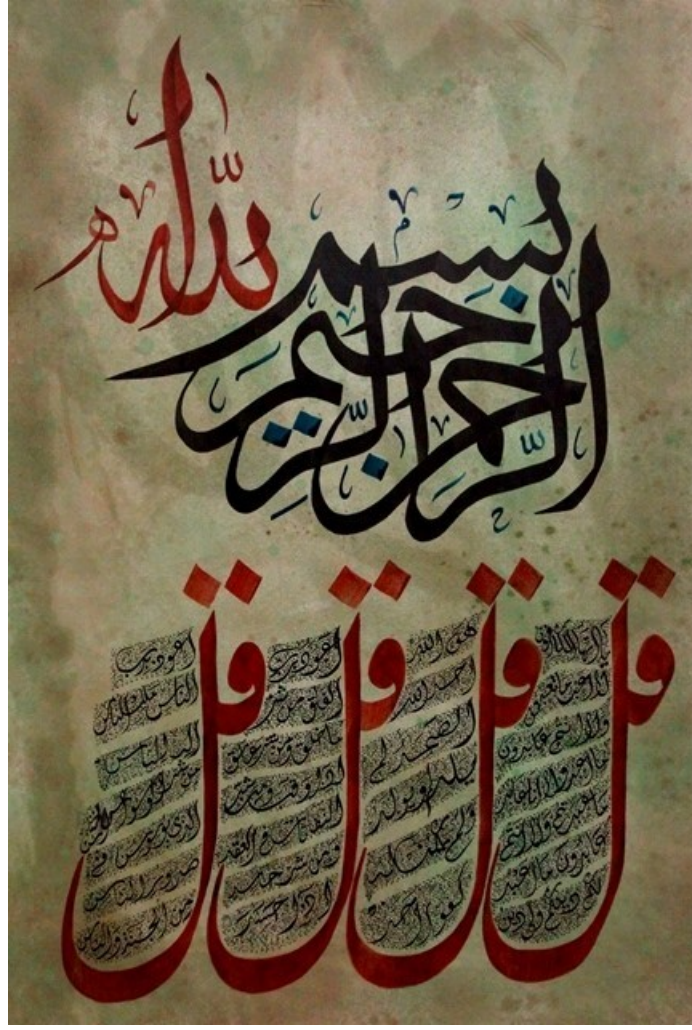 بسم الله
الرحمن الرحيم
قل
يا ايها الكافرون
لا اعبد ما تعبدون
ولا انتم عابدون
ما اعبد ولا انا عابد
ما عبدتم ولا انتم
عابدون ما اعبد
لكم دينكم ولي دين
قل
هو الله
احد الله
الصمد لم
يلد ولم يولد
ولم يكن له
كفوا احد
قل
اعوذ برب
الفلق من شر
ما خلق ومن شر غاسق
اذا وقب ومن شر
النفاثات في العقد
ومن شر حاسد
اذا حسد
قل
اعوذ برب
الناس ملك الناس
اله الناس
من شر الوسواس الخناس
الذي يوسوس في
صدور الناس
من الجنة والناس